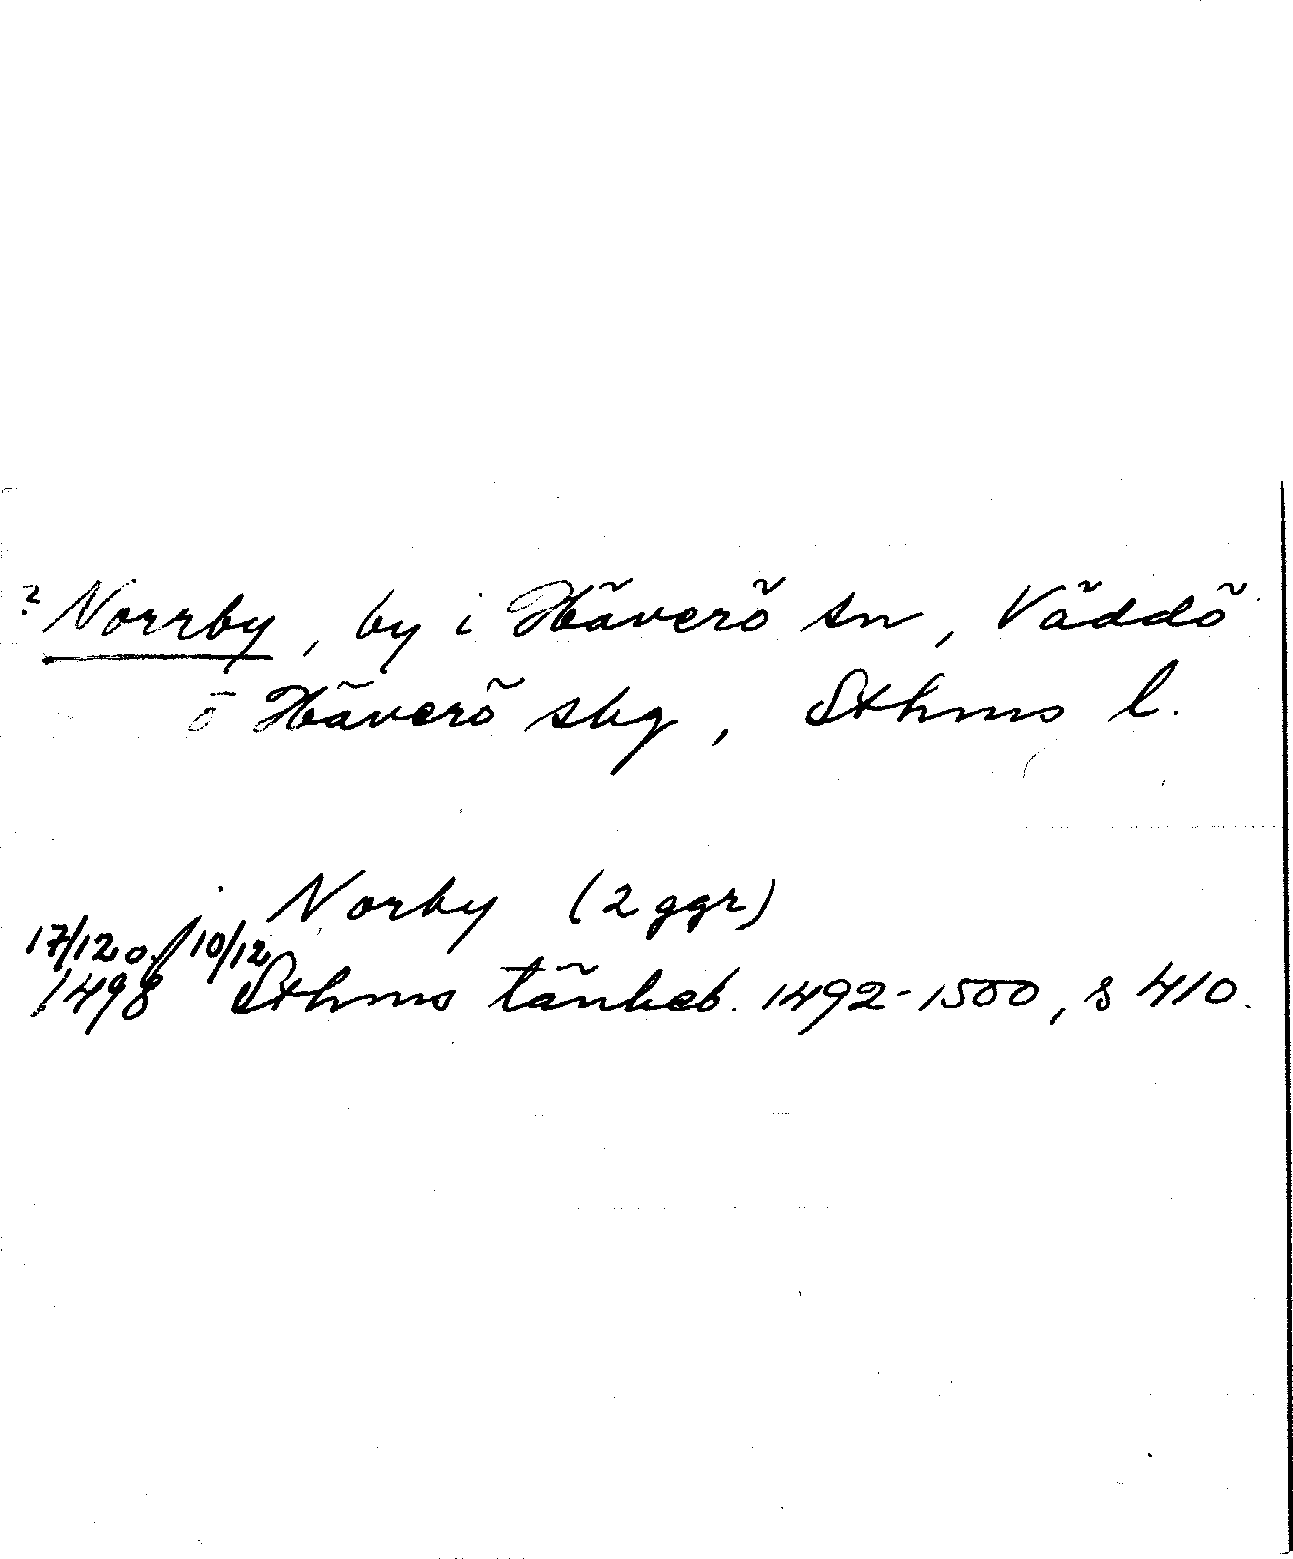 ? Norrby, by i Häverö sn, Väddö
o Häverö skg, Sthms l.
Norby (2 ggr)
17/12 o. 10/12
1498 Sthms tänkeb. 1492-1500, s 410.